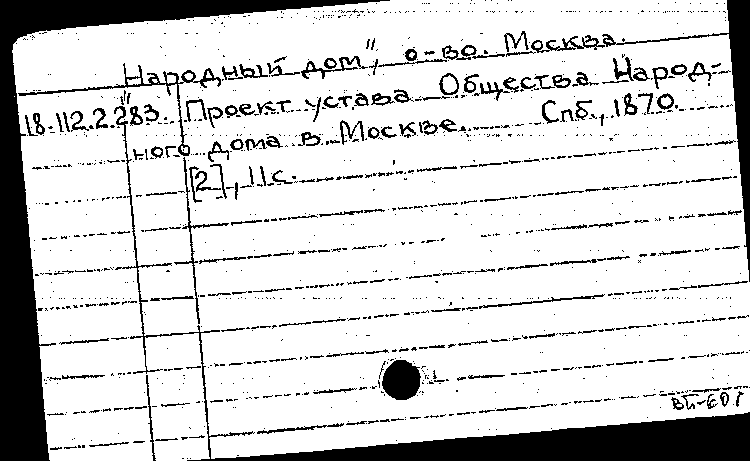 "Народный дом", о-во. Москва.
18.112.2.283. Проект устава Общества Народ-
ного дома в Москве. Спб., 1870.
[2], 11с.